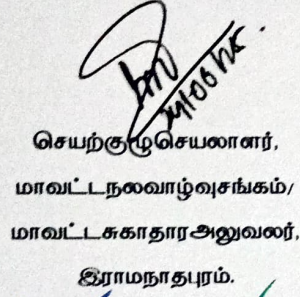 21/06/25.
செயற்குழுசெயலாளர்,
மாவட்டநலவாழ்வுசங்கம்/
மாவட்டசுகாதாரஅலுவலர்,
இராமநாதபுரம்.